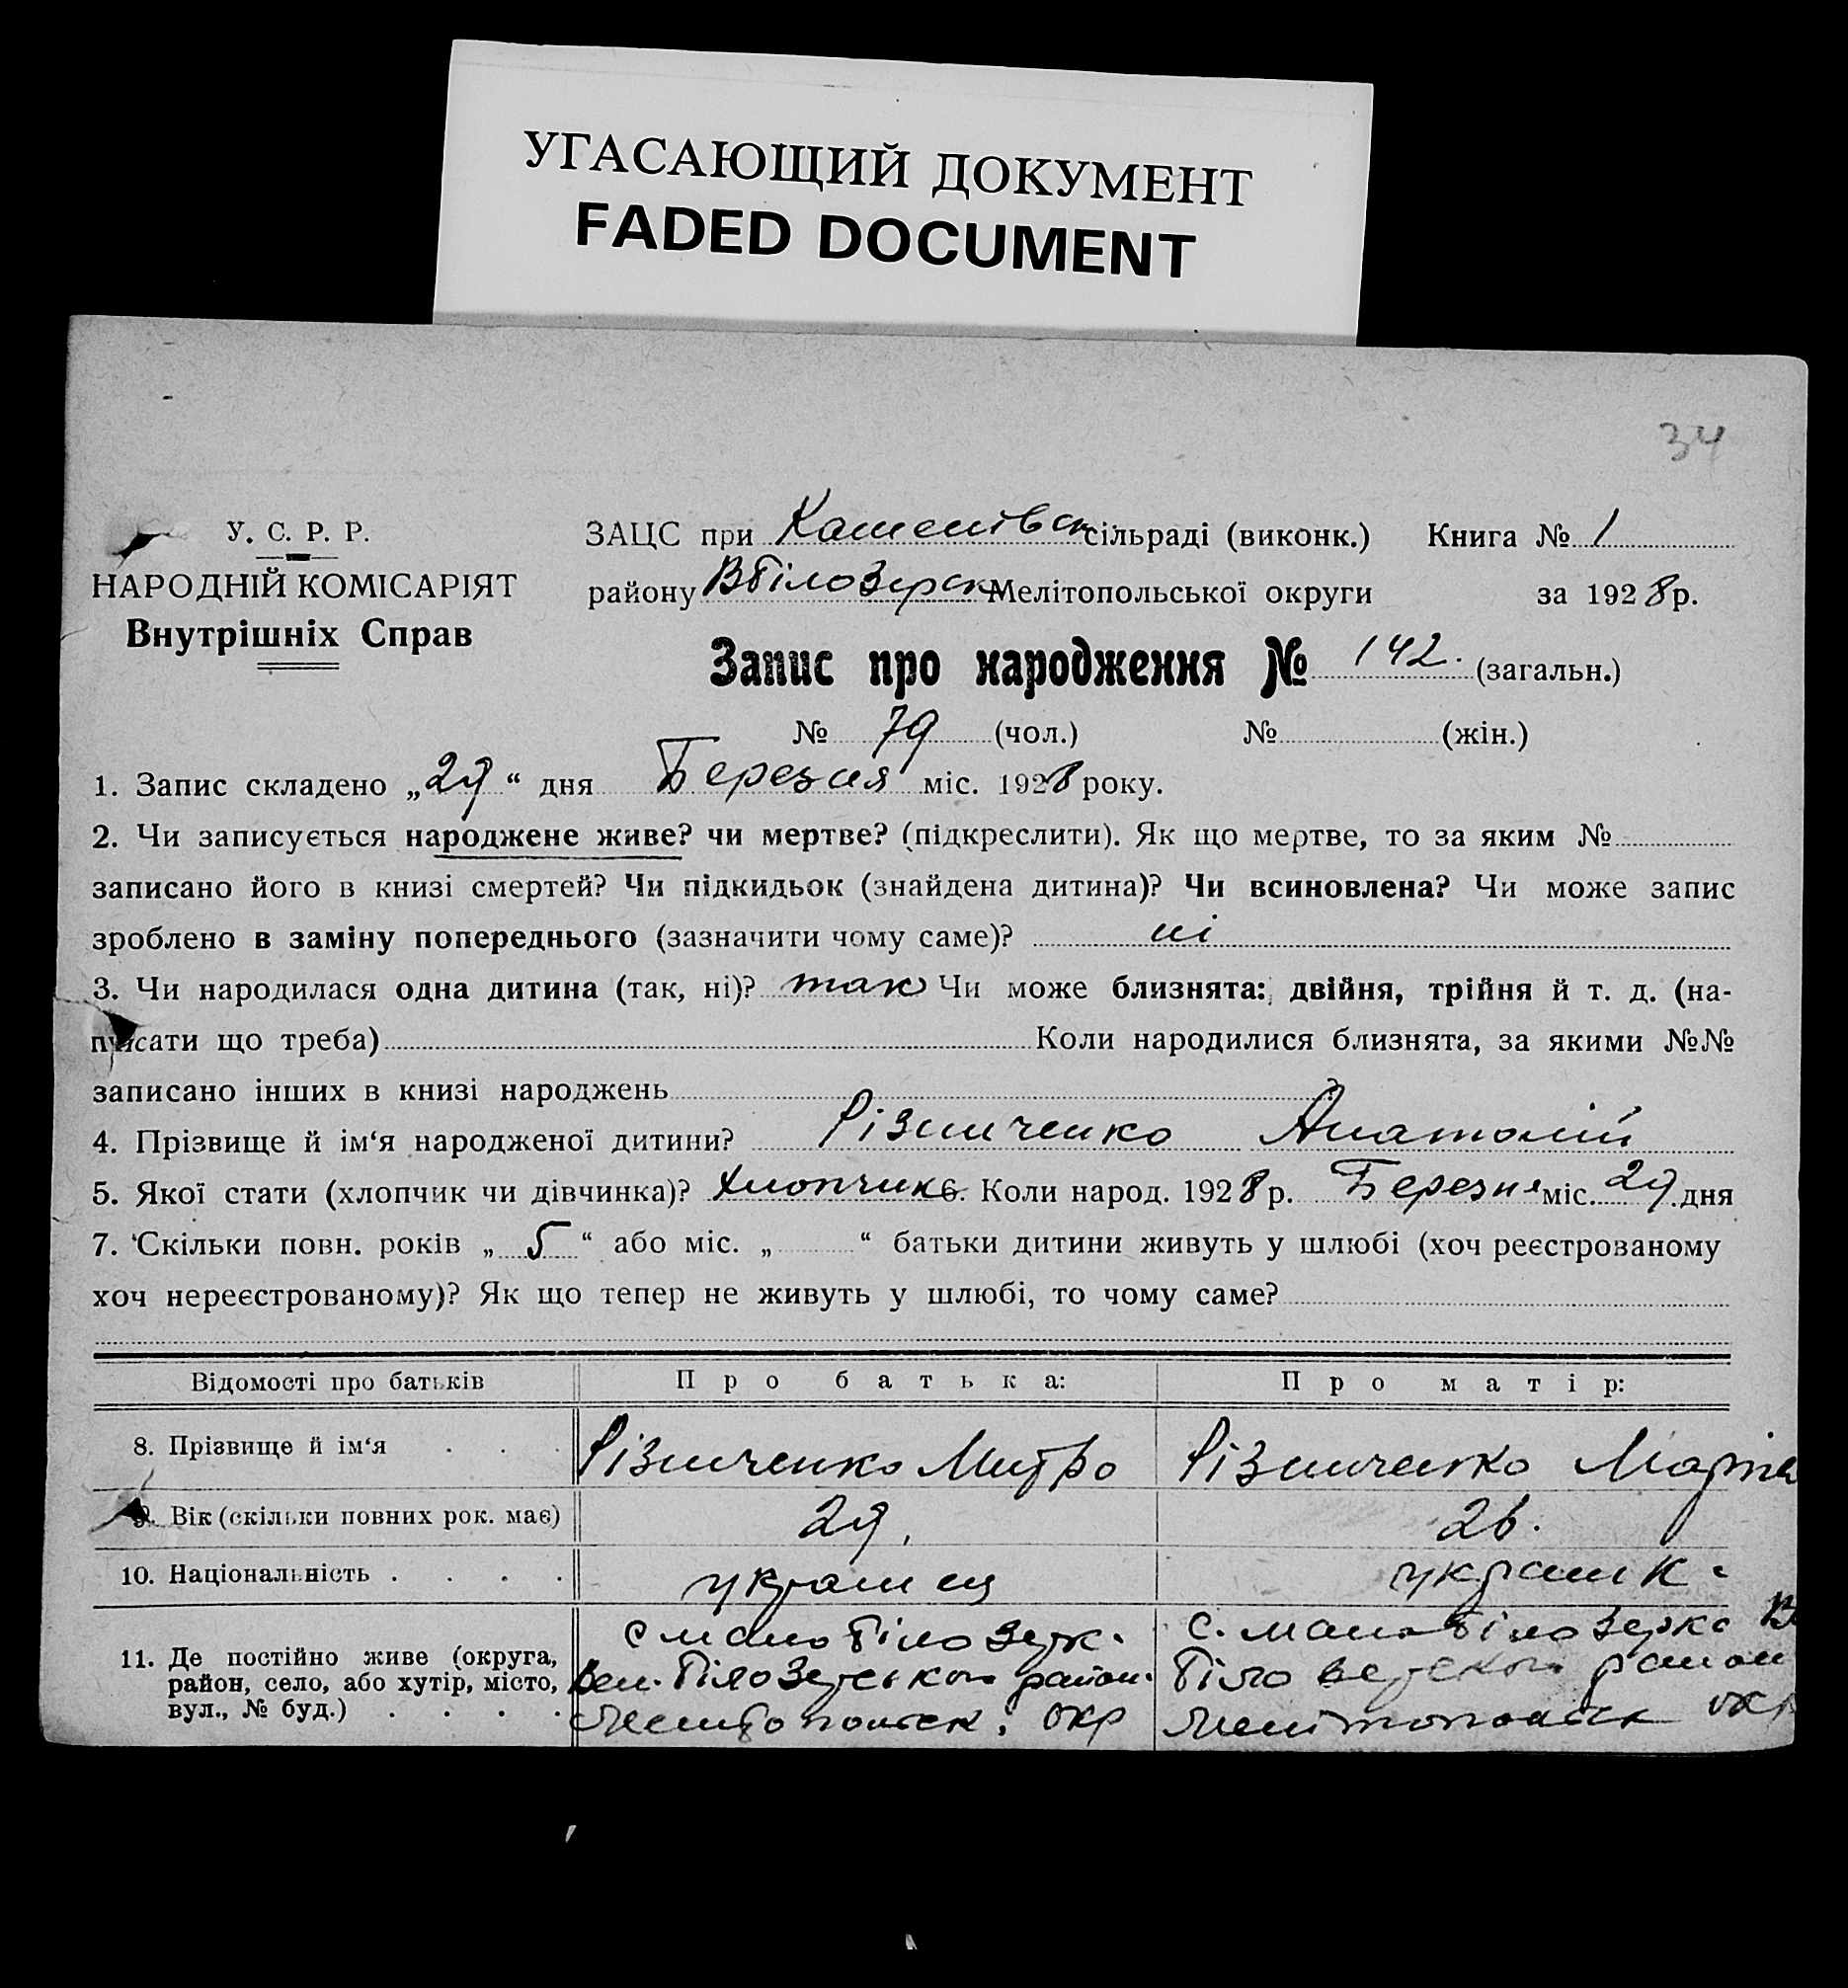 УГАСАЮЩИЙ ДОКУМЕНТ
FADED DOCUMENT
34
У. С. Р. Р.
НАРОДНІЙ КОМІСАРІЯТ
Внутрішніх Справ
ЗАЦС при Каменівск сільраді (виконк.) Книга № 1
району ВБілозерск Мелітопольської округи за 1928 р.
Запис про народження № 142. (загальн.)
№ 79 (чол.) № (жін.)
1. Запис складено „29“ дня Березня міс. 1928 року.
2. Чи записується народжене живе? чи мертве? (підкреслити). Як що мертве, то за яким №
записано його в книзі смертей? Чи підкидьок (знайдена дитина)? Чи всиновлена? Чи може запис
зроблено в заміну попереднього (зазначити чому саме)? ні
3. Чи народилася одна дитина (так, ні)? так Чи може близнята: двійня, трійня й т. д. (на-
писати що треба) Коли народилися близнята, за якими №№
записано інших в книзі народжень
4. Прізвище й ім‘я народженої дитини? Різниченко Анатолій
5. Якої стати (хлопчик чи дівчинка)? Хлопчик 6. Коли народ. 1928 р. Березня міс. 29 дня
7. Скільки повн. років „ 5 “ або міс. „ “ батьки дитини живуть у шлюбі (хоч реєстрованому
хоч нереєстрованому)? Як що тепер не живуть у шлюбі, то чому саме?
Відомості про батьків Про батька: Про матір:
8. Прізвище й ім‘я . . . Різниченко Митро Різниченко Марта
9. Вік (скільки повних рок. має) 29. 26.
10. Національність . . . . українец українк.
11. Де постійно живе (округа, с мало Білозерк. с. мала Білозерка В
район, село, або хутір, місто, Вел. Білозерського район. Білозерского район
вул., № буд.) . . . . Мелітопольск. окр Мелітопольск окр